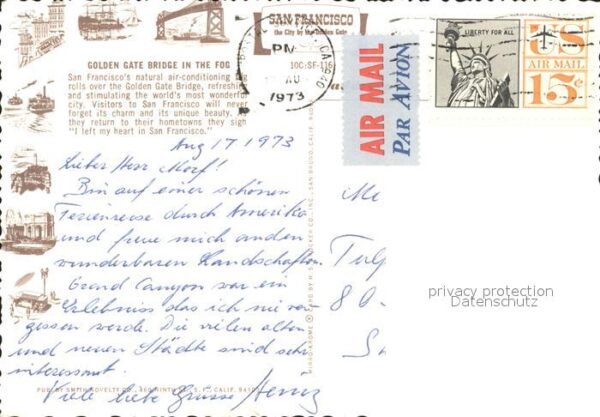 SAN FRANCISCO
the City by the Golden Gate
PM
AU
1973
10C:SF-116
AIR MAIL
PAR AVION
LIBERTY FOR ALL
US
AIR MAIL
15¢
GOLDEN GATE BRIDGE IN THE FOG
San Francisco's natural air-conditioning fog
rolls over the Golden Gate Bridge, refreshing
and stimulating the world's most wonderful
city. Visitors to San Francisco will never
forget its charm and its unique beauty. As
they return to their hometowns they sigh
"I left my heart in San Francisco."
Aug 17 1973
Lieber Herr Morf!
Bin auf einer schönen
Ferienreise durch Amerika
und freue mich an den
wunderbaren Landschaften.
Grand Canyon war ein
Erlebniss das ich nie ver-
gessen werde. Die vielen alten
und neuen Städte sind sehr
interessant.
Viele liebe Grüsse Heinz
PUB. BY SMITH NOVELTY CO., 460 NINTH ST., S. F., CALIF. 941
Me
Tulp
80
privacy protection
Datenschutz